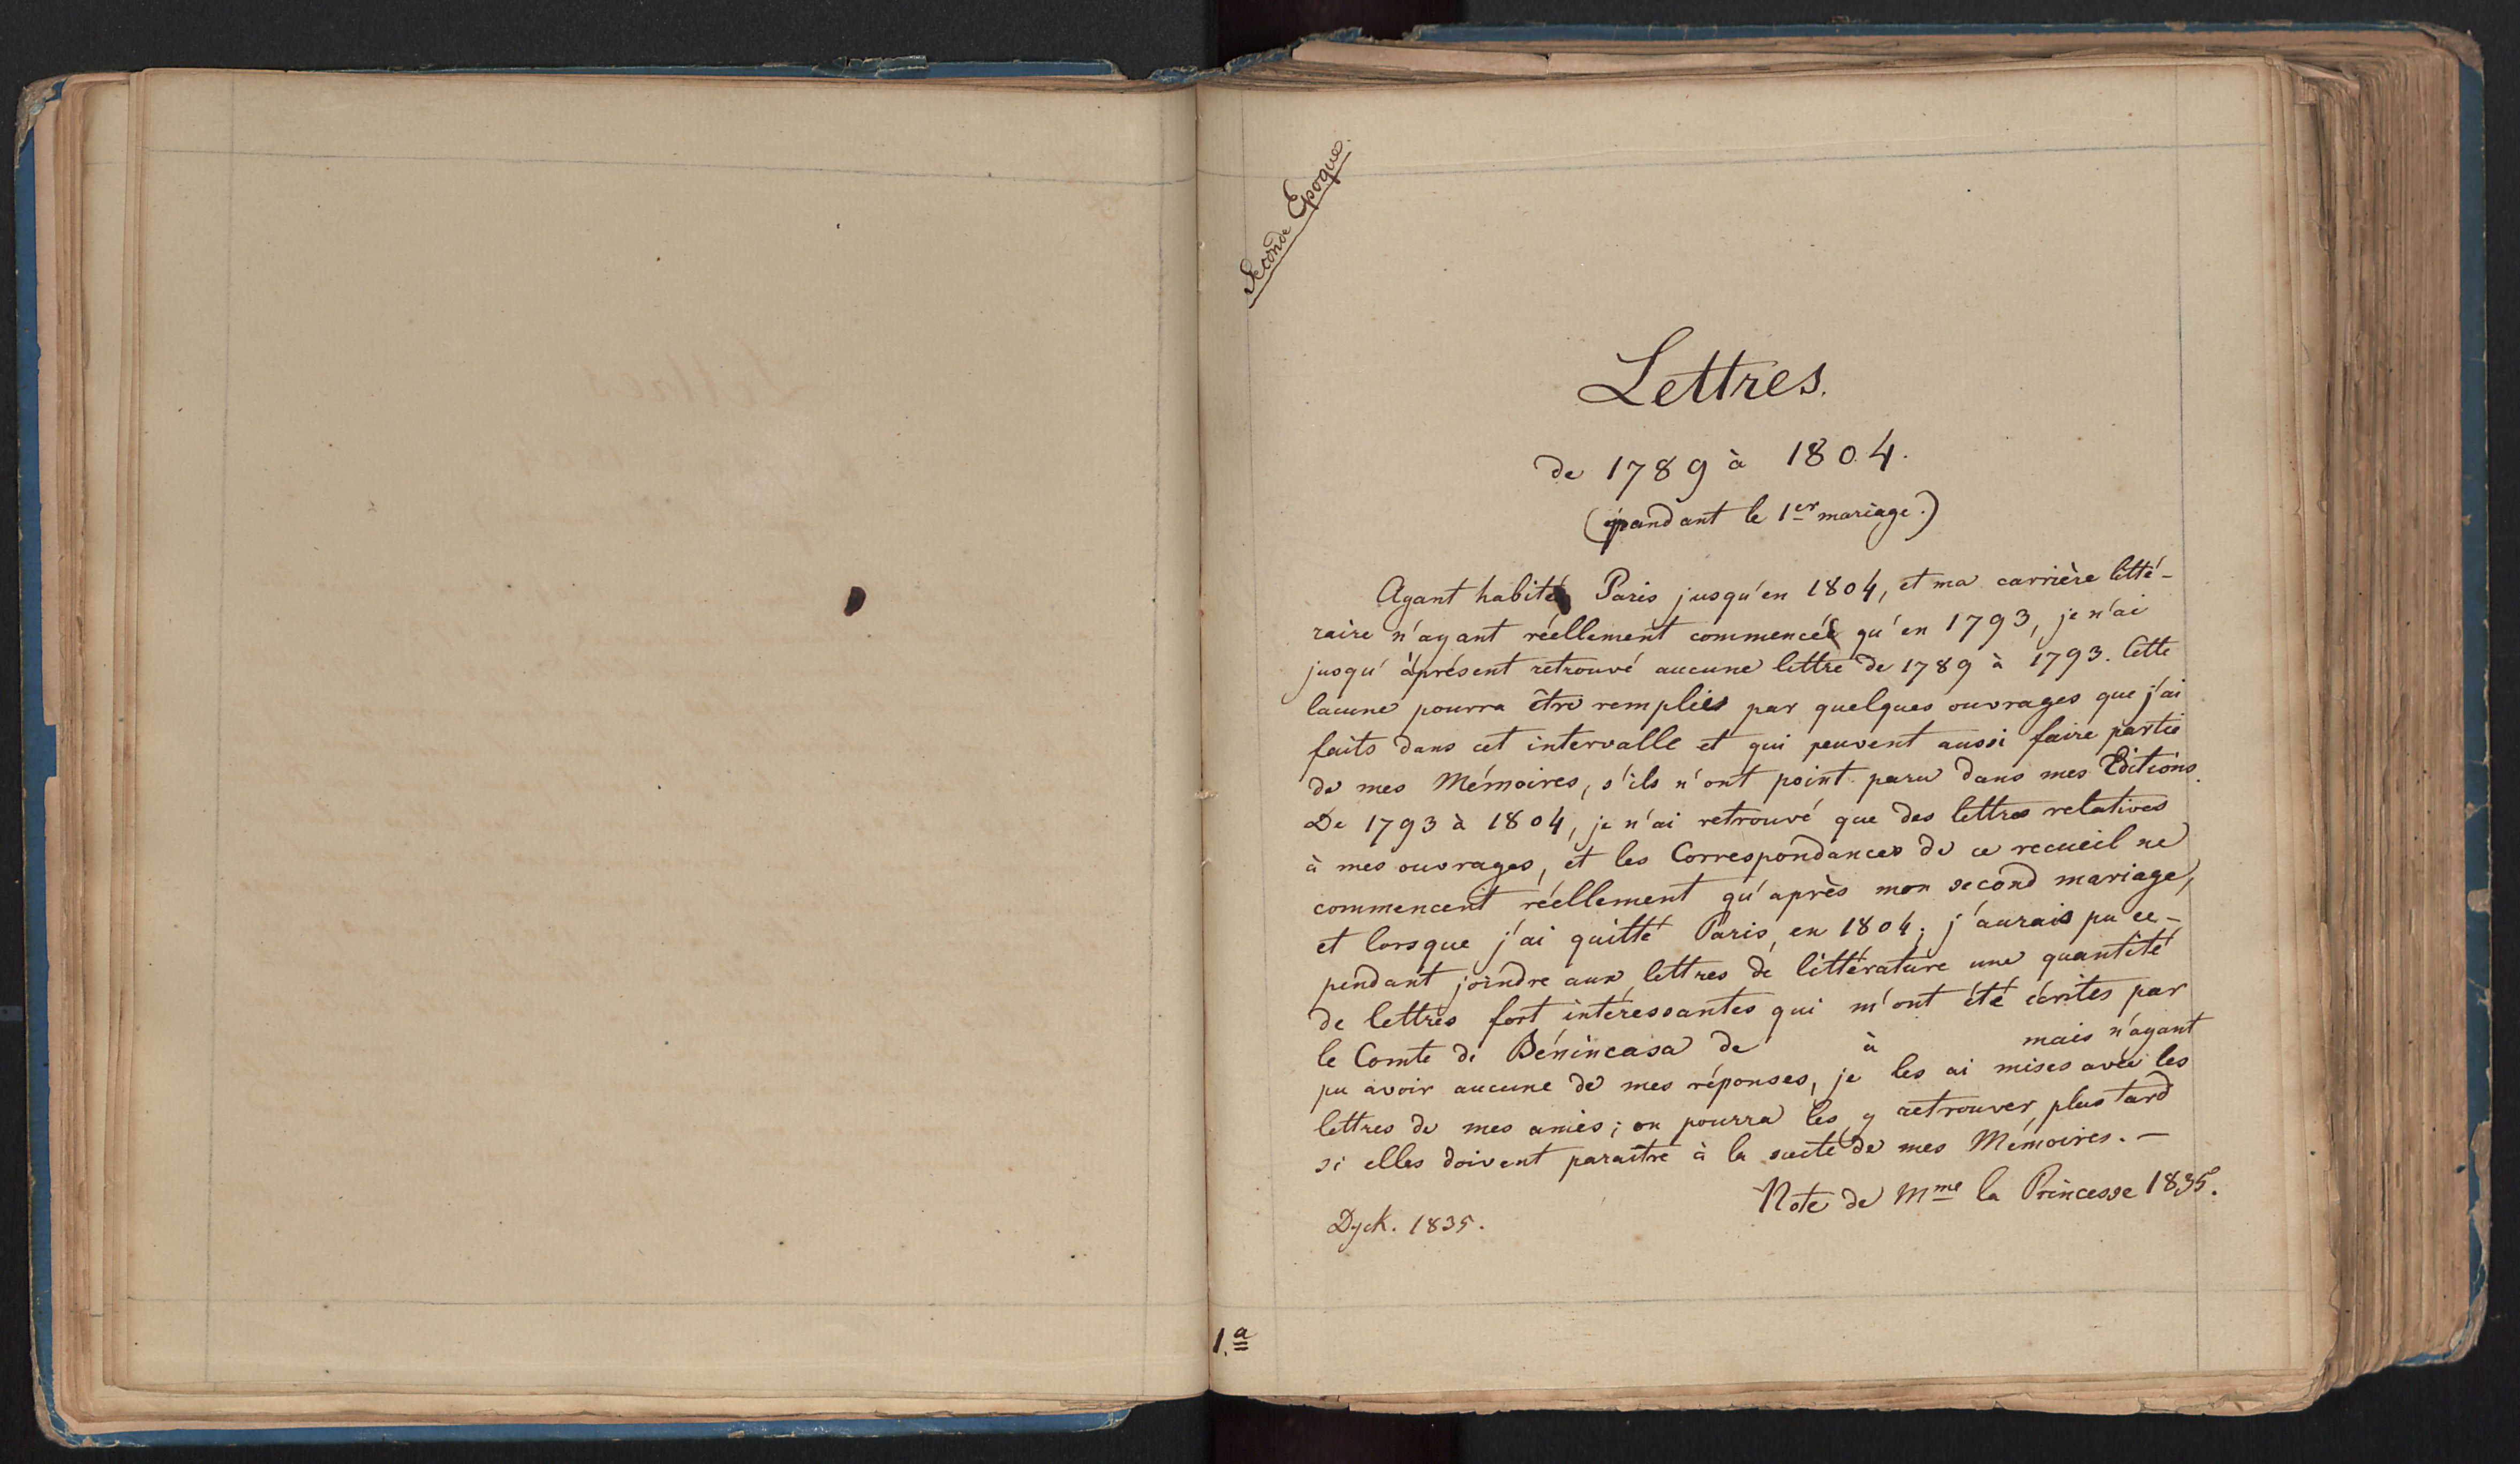 Seconde Epoque.
Lettres.
de 1789 à 1804.
(pendant le 1er mariage.)
Ayant habité Paris jusqu'en 1804, et ma carrière litté-
raire n'ayant réellement commencée qu'en 1793, je n'ai
jusqu'àprésent retrouvé aucune lettre de 1789 à 1793. Cette
lacune pourra être remplies par quelques ouvrages que j'ai
faits dans cet intervalle et qui peuvent aussi faire partie
de mes Mémoires, s'ils n'ont point paru dans mes Editions.
De 1793 à 1804, je n'ai retrouvé que des lettres relatives
à mes ouvrages, et les Correspondances de ce recueil ne
commencent réellement qu'après mon second mariage,
et lorsque j'ai quitté Paris, en 1804; j'aurais pu ce-
pendant joindre aux lettres de littérature une quantité
de lettres fort intéressantes qui m'ont été écrites par
le Comte de Bénincasa de à mais n'ayant
pu avoir aucune de mes réponses, je les ai mises avec les
lettres de mes amies; on pourra les y retrouver, plus tard
si elles doivent paraître à la suite de mes Mémoires. —
Note de Mme la Princesse 1835.
Dyck. 1835.
1.a